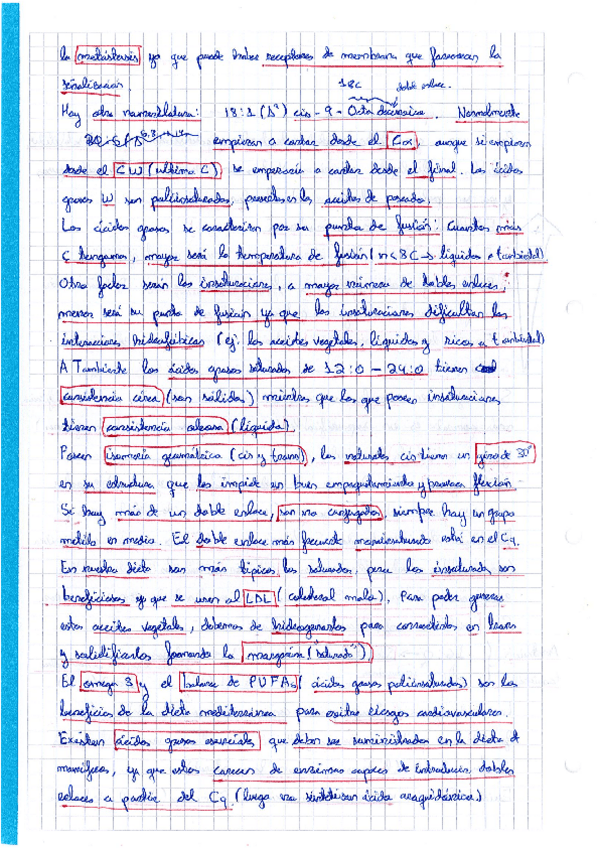 la metástasis ya que puede haber receptores de membrana que favorezcan la
señalización. 18C doble enlace
Hay otra nomenclatura: 18:1 (Δ⁹) cis-9-Octadecenoico. Normalmente
empiezan a contar desde el Cα, aunque si empiezan
desde el CW (último C) se empezaría a contar desde el final. Los ácidos
grasos W son poliinsaturados, presentes en los aceites de pescado.
Los ácidos grasos se caracterizan por su punto de fusión: Cuantos más
C tengamos, mayor será la temperatura de fusión (n<8C → líquidos a tambiental)
Otro factor serán las insaturaciones, a mayor número de dobles enlaces,
menor será su punto de fusión ya que las insaturaciones dificultan las
interacciones hidrofóbicas (ej: los aceites vegetales, líquidos y ricos a t ambiental)
A Tambiente los ácidos grasos saturados de 12:0 - 24:0 tienen
consistencia cérea (son sólidos) mientras que los que poseen insaturaciones
tienen consistencia oleosa (líquida)
Poseen isomería geométrica (cis y trans), los naturales cis tienen un giro de 30°
en su estructura que les impide un buen empaquetamiento y provoca flexión
Si hay más de un doble enlace, son no conjugados, siempre hay un grupo
metilo en medio. El doble enlace más frecuente monoinsaturado está en el C9.
En nuestra dieta son más típicos los saturados, pero los insaturados son
beneficiosos ya que se unen al LDL (colesterol malo). Para poder generar
estos aceites vegetales, debemos de hidrogenarlos para convertirlos en trans
y solidificarlos formando la margarina ("saturado")
El omega 3 y el balance de PUFAs (ácidos grasos poliinsaturados) son los
beneficios de la dieta mediterránea para evitar riesgos cardiovasculares.
Existen ácidos grasos esenciales que deben ser suministrados en la dieta d
mamíferos, ya que estos carecen de enzimas capaces de introducir dobles
enlaces a partir del C9 (luego ya sintetizan ácido araquidónico)